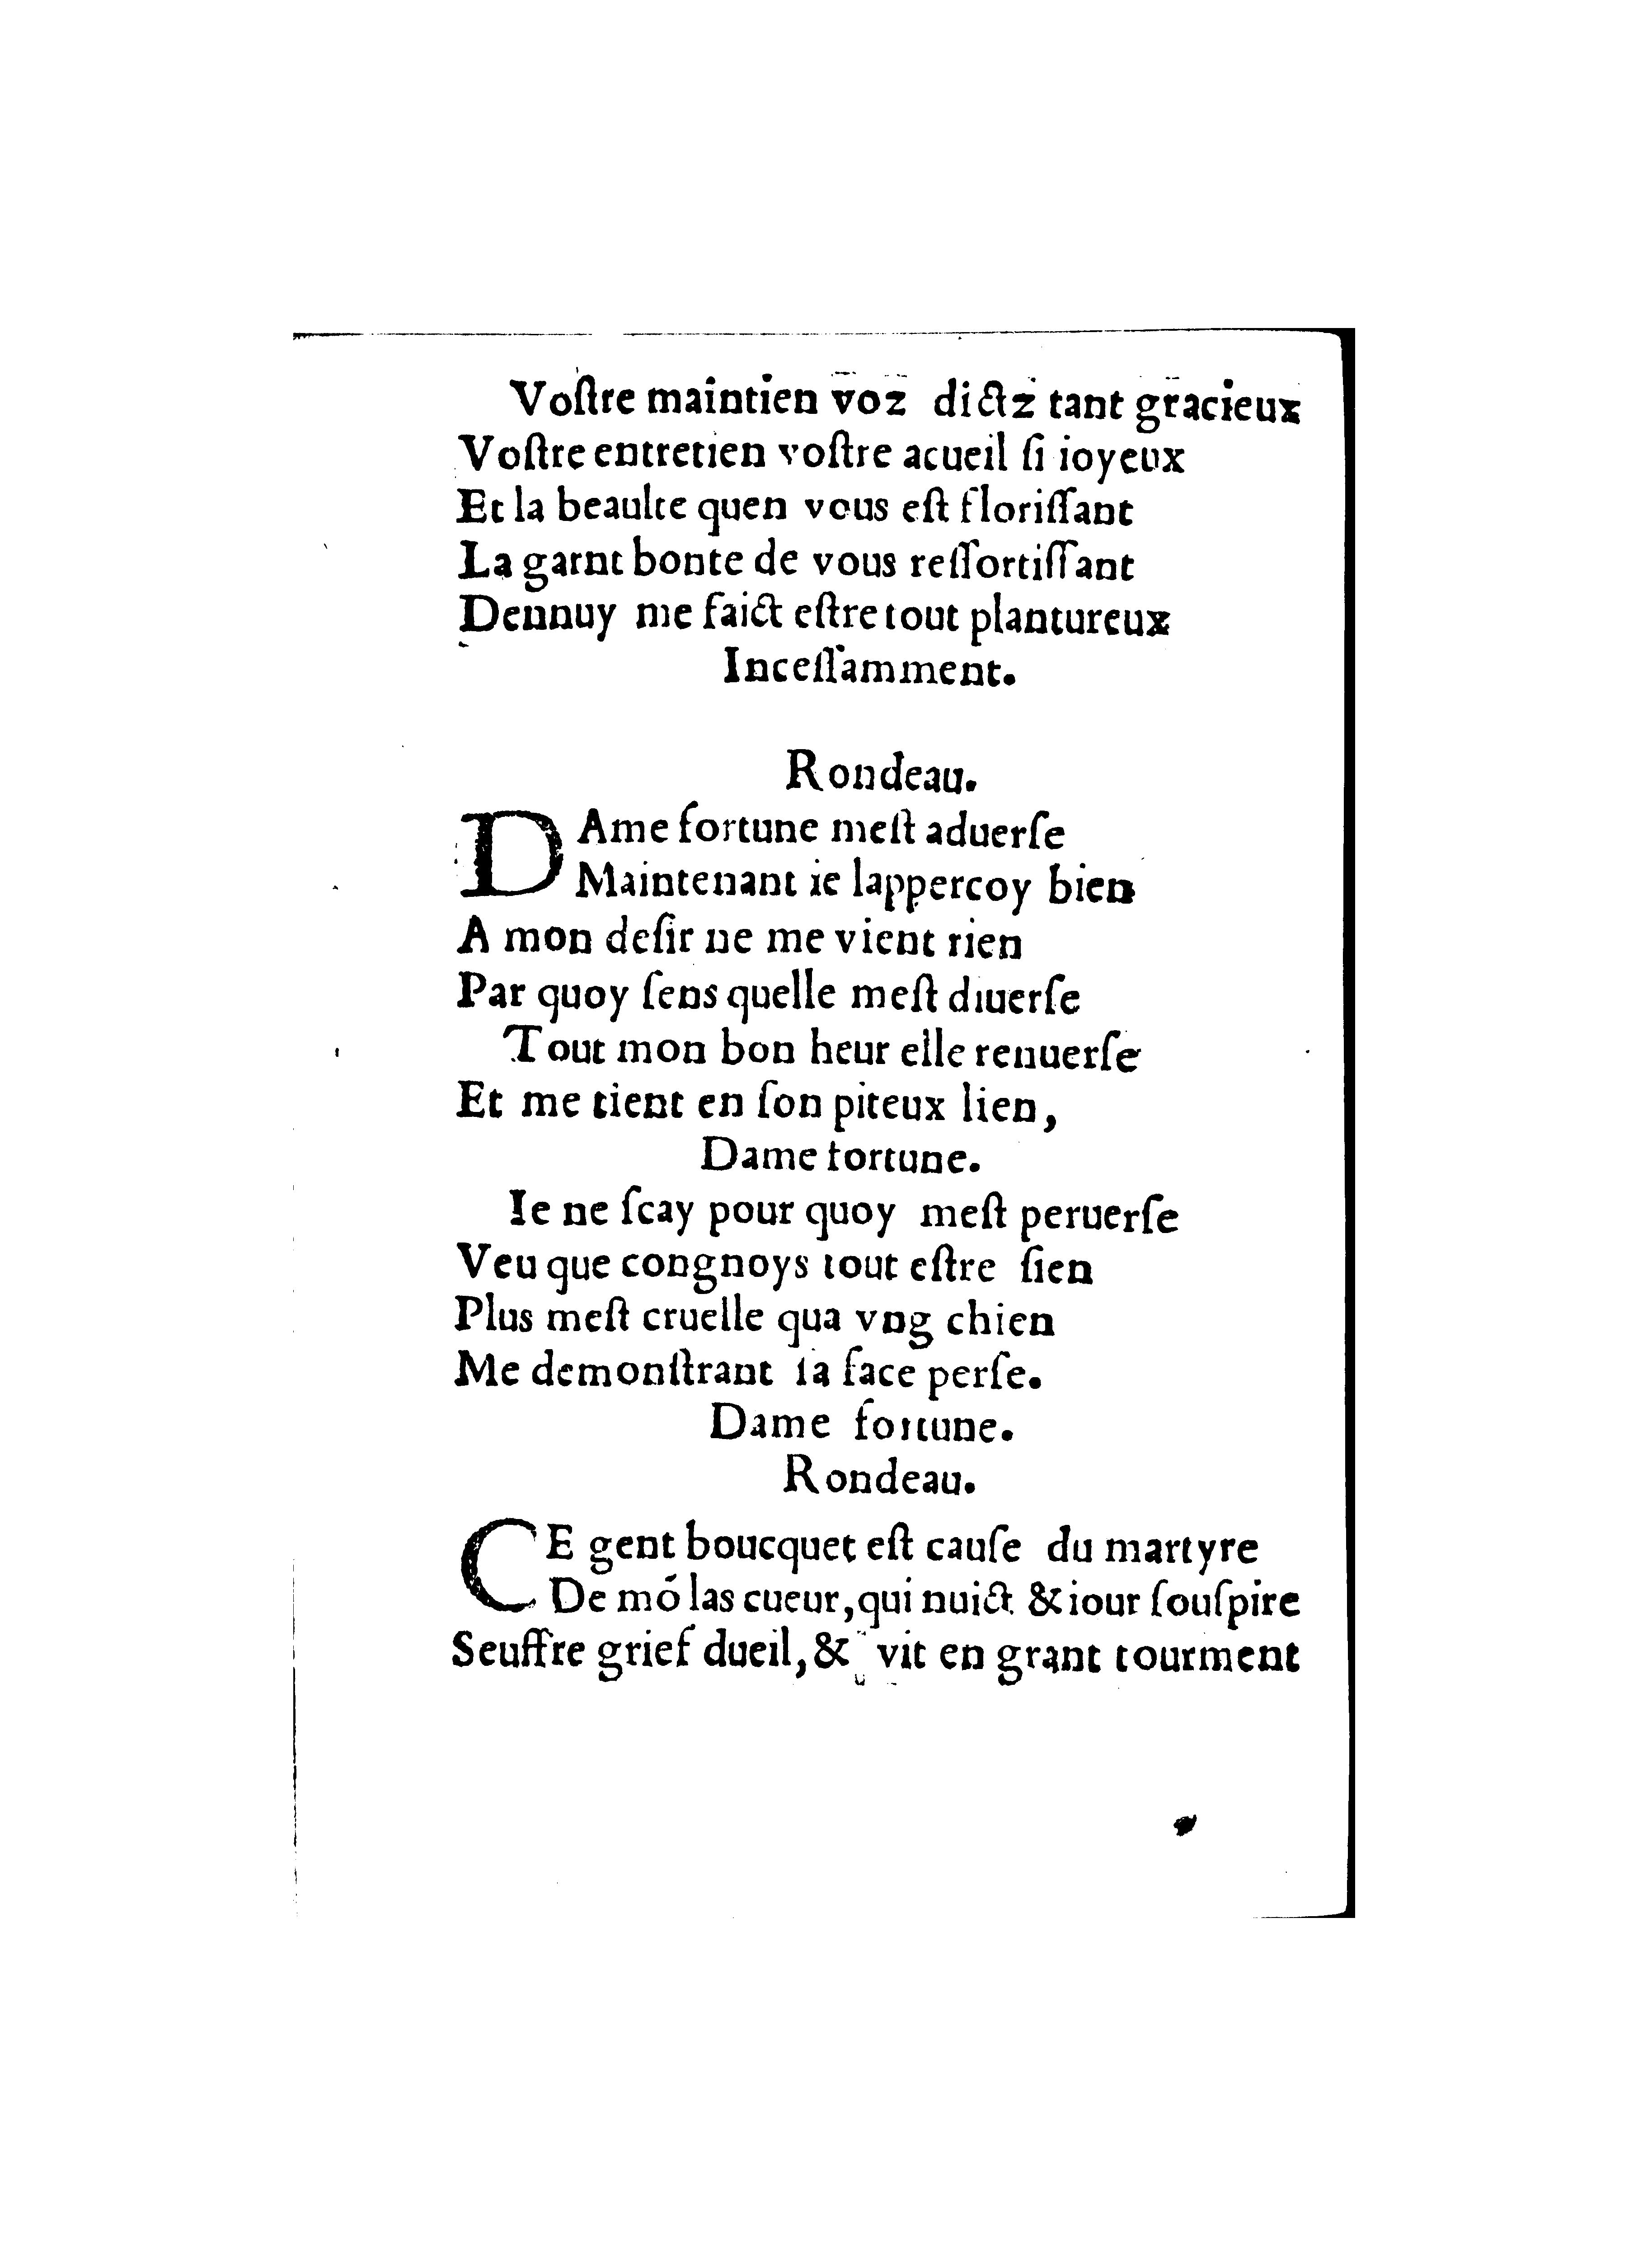 Voſtre maintien voz dictz tant gracieux
Voſtre entretien voſtre acueil ſi ioyeux
Et la beaulte quen vous eſt floriſſant
La garnt bonte de vous reſſortiſſant
Dennuy me faict eſtre tout plantureux
Inceſſamment.
Rondeau.
DAme fortune meſt aduerſe
Maintenant ie lappercoy bien
A mon deſir ne me vient rien
Par quoy ſens quelle meſt diuerſe
Tout mon bon heur elle renuerſe
Et me tient en ſon piteux lien,
Dame fortune.
Ie ne ſcay pour quoy meſt peruerſe
Veu que congnoys tout eſtre ſien
Plus meſt cruelle qua vng chien
Me demonſtrant ſa face perſe.
Dame fortune.
Rondeau.
CE gent boucquet eſt cauſe du martyre
De mõ las cueur, qui nuict & iour ſouſpire
Seuffre grief dueil, & vit en grant tourment